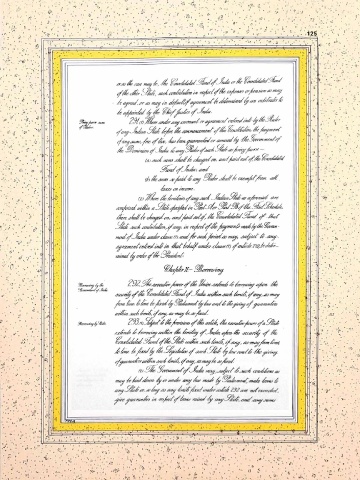 125
or as the case may be, the Consolidated Fund of India or the Consolidated Fund
of the other State, such contribution in respect of the expenses or pension as may
be agreed, or as may in default of agreement be determined by an arbitrator to
be appointed by the Chief Justice of India.
Privy purse sums
of Rulers.
291.(1) Where under any covenant or agreement entered into by the Ruler
of any Indian State before the commencement of this Constitution, the payment
of any sums, free of tax, has been guaranteed or assured by the Government of
the Dominion of India to any Ruler of such State as privy purse—
(a) such sums shall be charged on, and paid out of, the Consolidated
Fund of India; and
(b) the sums so paid to any Ruler shall be exempt from all
taxes on income.
(2) Where the territories of any such Indian State as aforesaid are
comprised within a State specified in Part A or Part B of the First Schedule,
there shall be charged on, and paid out of, the Consolidated Fund of that
State such contribution, if any, in respect of the payments made by the Govern-
ment of India under clause (1) and for such period as may, subject to any
agreement entered into in that behalf under clause (1) of article 278, be deter-
mined by order of the President.
Chapter II — Borrowing
Borrowing by the
Government of India.
292. The executive power of the Union extends to borrowing upon the
security of the Consolidated Fund of India within such limits, if any, as may
from time to time be fixed by Parliament by law and to the giving of guarantees
within such limits, if any, as may be so fixed.
Borrowing by States.
293.(1) Subject to the provisions of this article, the executive power of a State
extends to borrowing within the territory of India upon the security of the
Consolidated Fund of the State within such limits, if any, as may from time
to time be fixed by the Legislature of such State by law and to the giving
of guarantees within such limits, if any, as may be so fixed.
(2) The Government of India may, subject to such conditions as
may be laid down by or under any law made by Parliament, make loans to
any State or, so long as any limits fixed under article 292 are not exceeded,
give guarantees in respect of loans raised by any State, and any sums